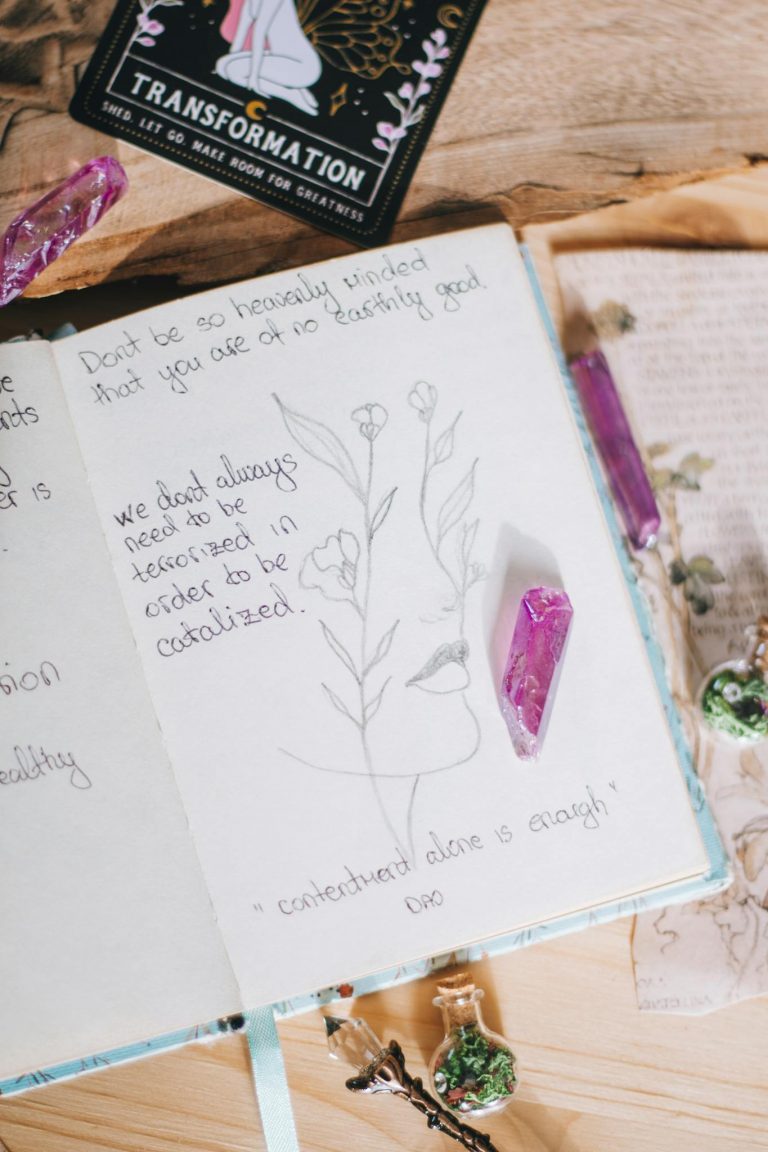 TRANSFORMATION
SHED. LET GO. MAKE ROOM FOR GREATNESS
nts
er is
ealthy
Dont be so heavenly minded
that you are of no earthly good
we dont always
need to be
terrorized in
order to be
catalized.
"contentment alone is enough"
DAO